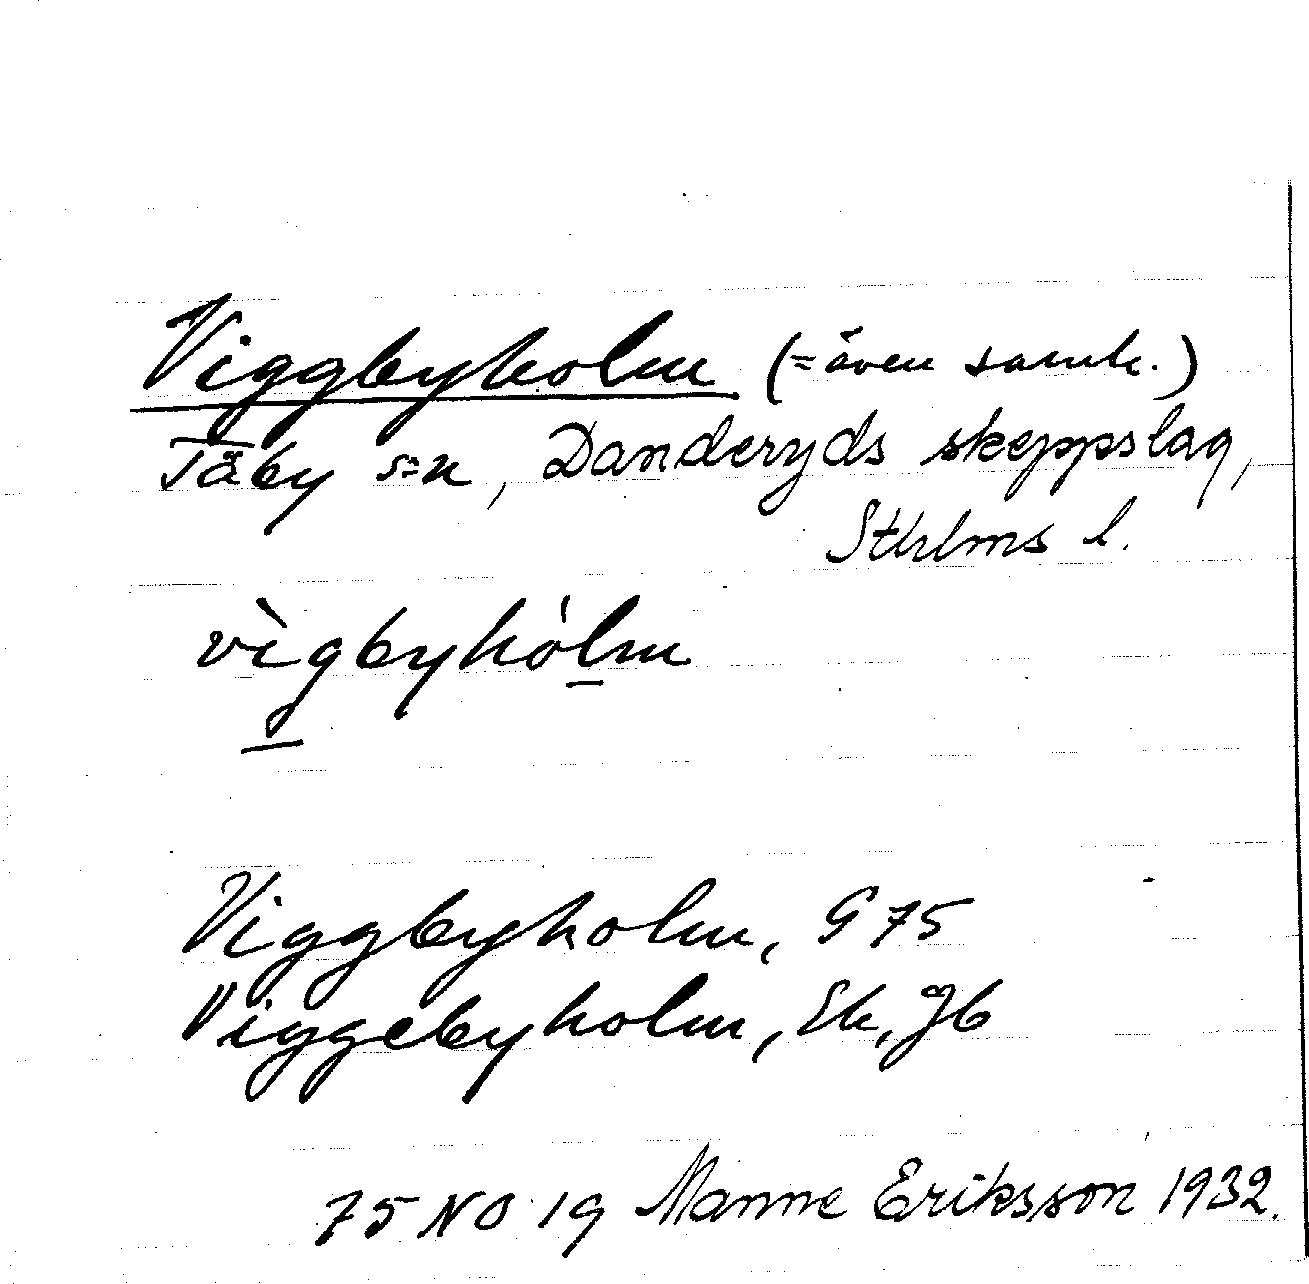 Viggbyholm (= även samh.)
Täby s:n, Danderyds skeppslag,
Sthlms l.
vìgbyhólm
Viggbyholm, G 75
Viggebyholm, Ek, Jb
75 NO 19 Manne Eriksson 1932.